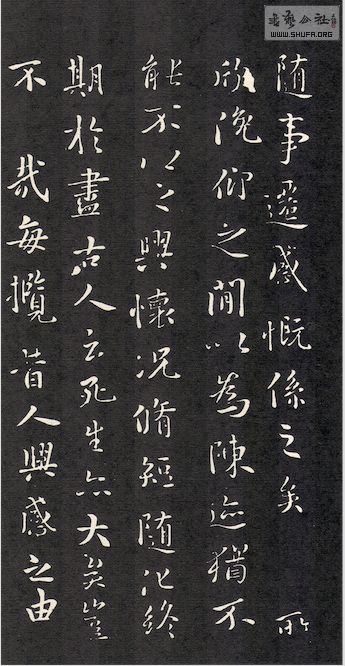 隨事遷感慨係之矣 所
欣俛仰之間以為陳迹猶不
能不以之興懷況脩短隨化終
期於盡古人云死生亦大矣豈
不 哉每攬昔人興感之由
書藝公社
WWW.SHUFA.ORG